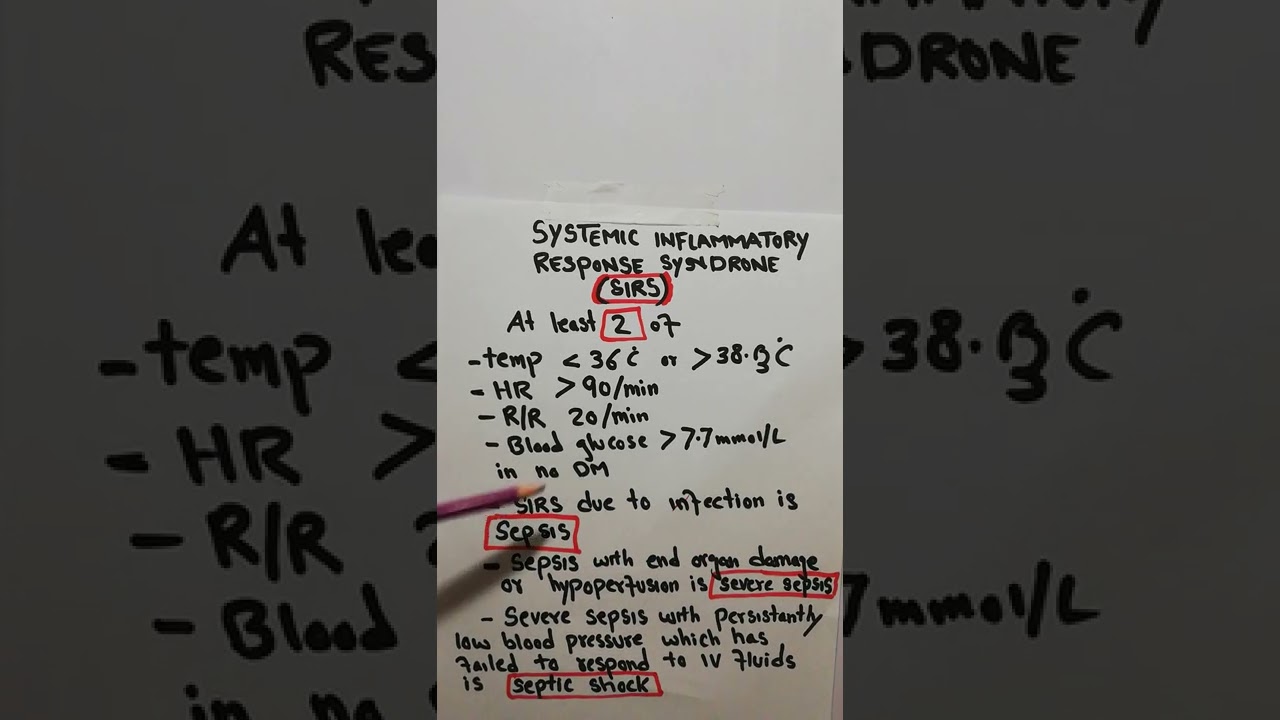 SYSTEMIC INFLAMMATORY
RESPONSE SYNDRONE
(SIRS)
At least 2 of
- temp < 36°C or > 38.3°C
- HR > 90/min
- R/R 20/min
- Blood glucose > 7.7mmol/L
in no DM
- SIRS due to infection is
Sepsis
- Sepsis with end organ damage
or hypoperfusion is severe sepsis
- Severe sepsis with persistantly
low blood pressure which has
failed to respond to IV fluids
is septic shock